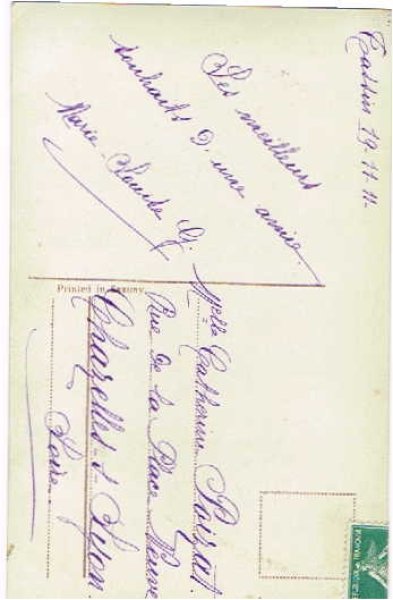 Tassin 29-11-11-
Les meilleurs
souhaits d'une amie.
Marie-Louise G.
Printed in Saxony.
Melle Catherine Poizat.
Rue de la Place Neuve
Chazelles-s-Lyon
Loire.